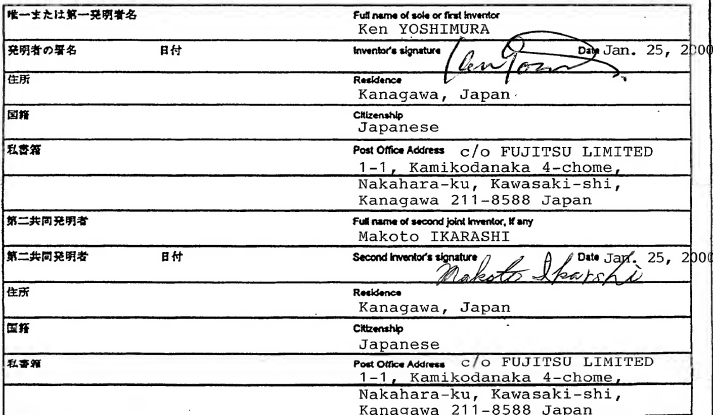 唯一または第一発明者名 Full name of sole or first inventor
Ken YOSHIMURA
発明者の署名 日付 Inventor's signature Date Jan. 25, 2000
住所 Residence
Kanagawa, Japan
国籍 Citizenship
Japanese
私書箱 Post Office Address c/o FUJITSU LIMITED
1-1, Kamikodanaka 4-chome,
Nakahara-ku, Kawasaki-shi,
Kanagawa 211-8588 Japan
第二共同発明者 Full name of second joint inventor, if any
Makoto IKARASHI
第二共同発明者 日付 Second inventor's signature Date Jan. 25, 2000
Makoto Ikarshi
住所 Residence
Kanagawa, Japan
国籍 Citizenship
Japanese
私書箱 Post Office Address c/o FUJITSU LIMITED
1-1, Kamikodanaka 4-chome,
Nakahara-ku, Kawasaki-shi,
Kanagawa 211-8588 Japan